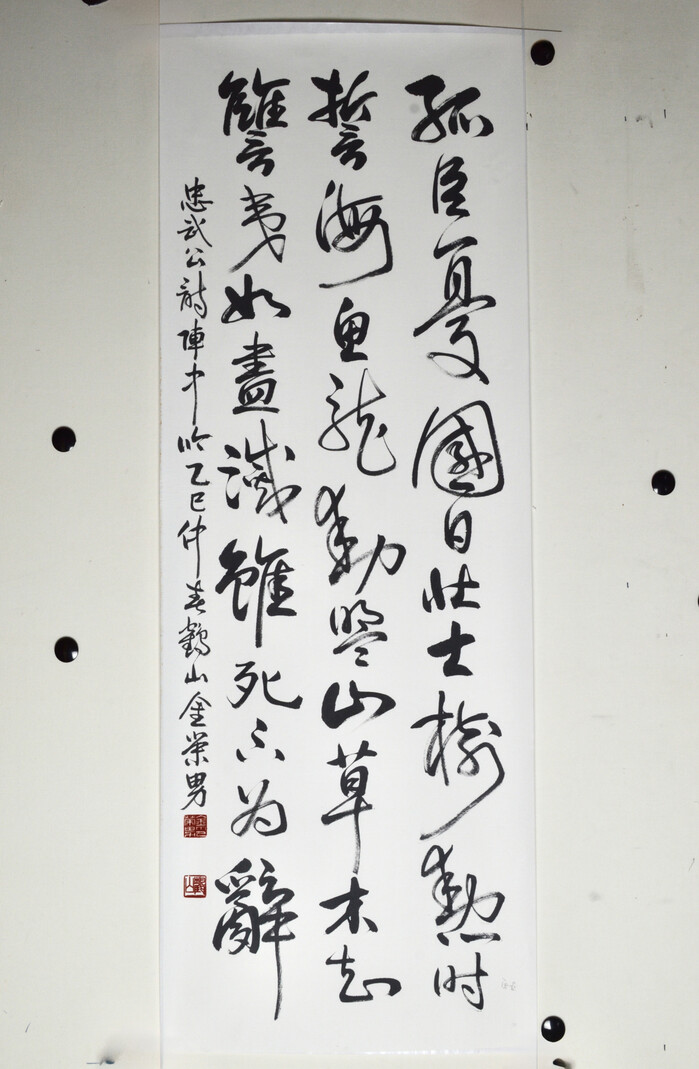 孤臣憂國日壯士樹勲时
誓海魚龍動盟山草木知
讐夷如盡滅雖死不為辭
忠武公詩陣中吟乙巳仲春鶴山金榮男